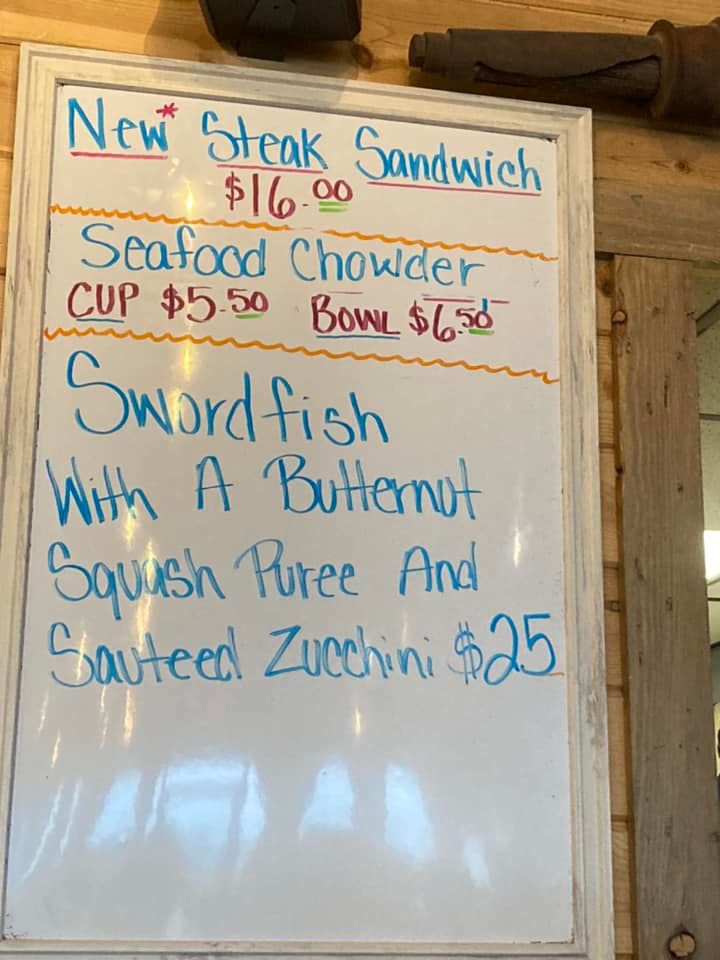 New* Steak Sandwich
$16.00
Seafood Chowder
CUP $5.50 BOWL $6.50
Swordfish
With A Butternut
Squash Puree And
Sauteed Zucchini $25